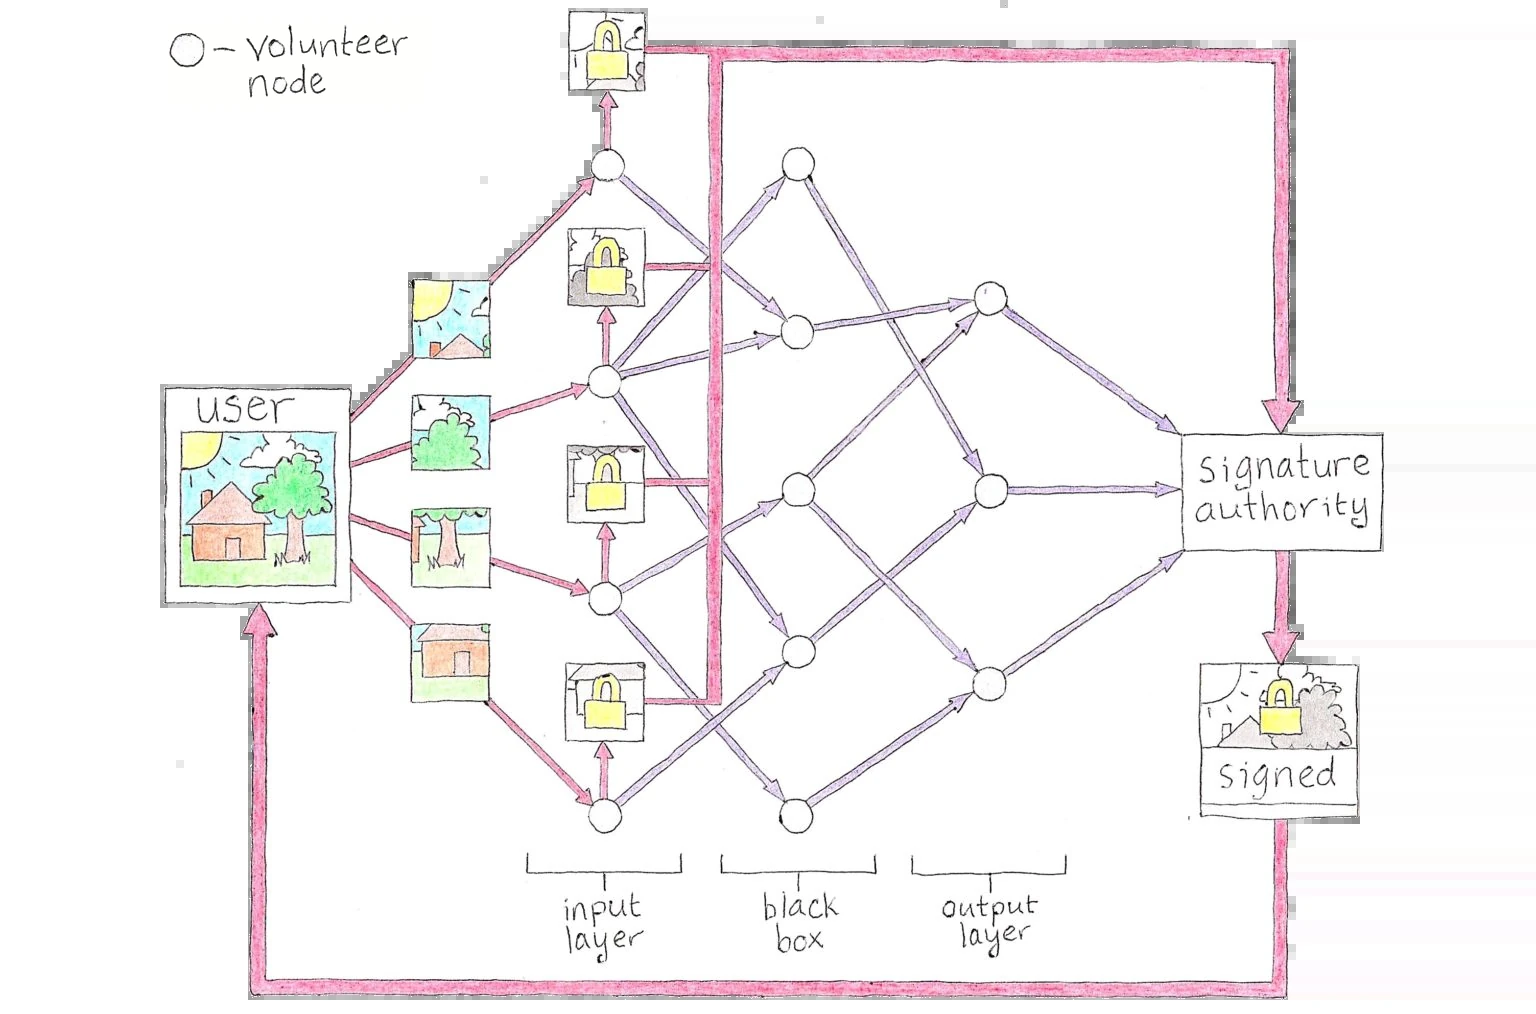 - volunteer
node
user
signature
authority
signed
input
layer
black
box
output
layer